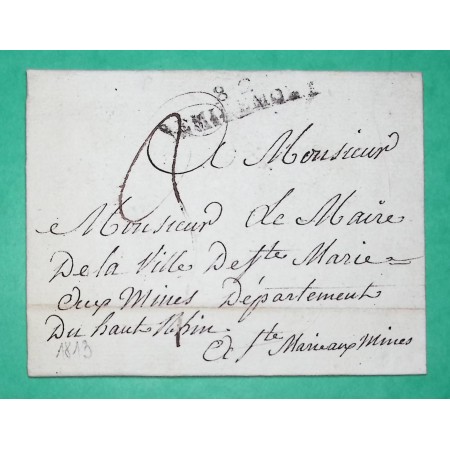 82
REMIREMONT
A Monsieur
Monsieur Le Maire
De la Ville De Ste Marie=
aux Mines Département
Du haut Rhin.
A Ste Marie aux Mines
1813